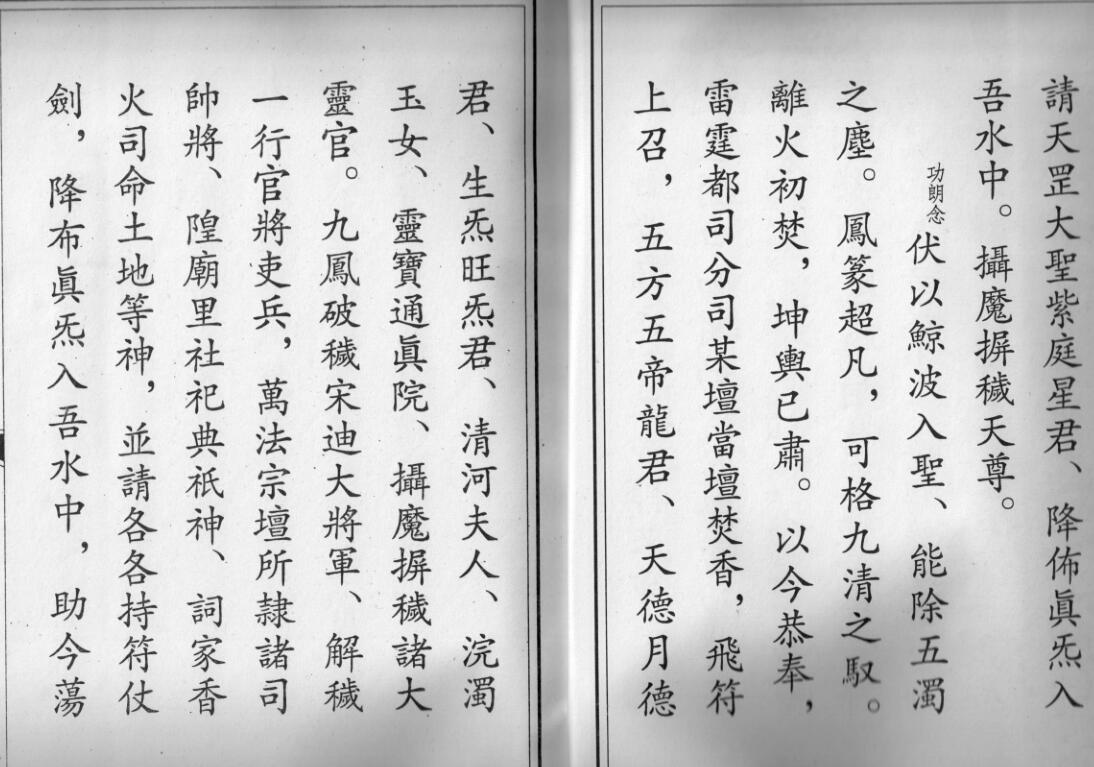 請天罡大聖紫庭星君、降佈眞炁入
吾水中。攝魔摒穢天尊。
功朗念
伏以鯨波入聖、能除五濁
之塵。鳳篆超凡，可格九清之馭。
離火初焚，坤輿已肅。以今恭奉，
雷霆都司分司某壇當壇焚香，飛符
上召，五方五帝龍君、天德月德
君、生炁旺炁君、清河夫人、浣濁
玉女、靈寶通眞院、攝魔摒穢諸大
靈官。九鳳破穢宋迪大將軍、解穢
一行官將吏兵，萬法宗壇所隷諸司
帥將、隍廟里社祀典祇神、詞家香
火司命土地等神，並請各各持符仗
劍，降布眞炁入吾水中，助今蕩